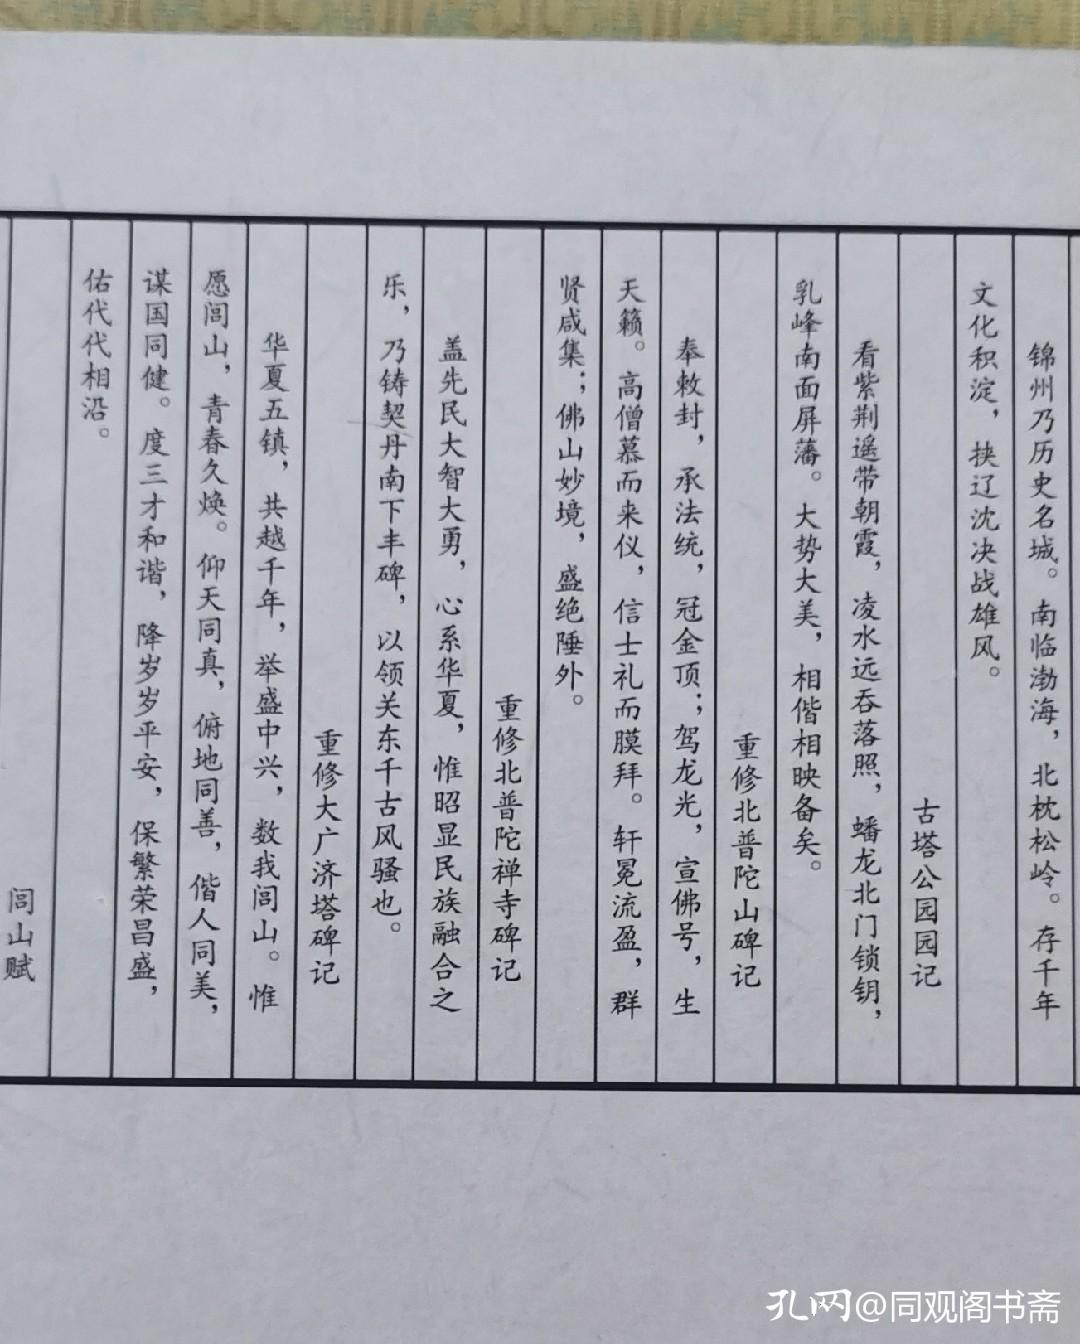 锦州乃历史名城。南临渤海，北枕松岭。存千年
文化积淀，挟辽沈决战雄风。
古塔公园园记
看紫荆遥带朝霞，凌水远吞落照，蟠龙北门锁钥，
乳峰南面屏藩。大势大美，相偕相映备矣。
重修北普陀山碑记
奉敕封，承法统，冠金顶；驾龙光，宣佛号，生
天籁。高僧慕而来仪，信士礼而膜拜。轩冕流盈，群
贤咸集；佛山妙境，盛绝陲外。
重修北普陀禅寺碑记
盖先民大智大勇，心系华夏，惟昭显民族融合之
乐，乃铸契丹南下丰碑，以领关东千古风骚也。
重修大广济塔碑记
华夏五镇，共越千年，举盛中兴，数我闾山。惟
愿闾山，青春久焕。仰天同真，俯地同善，偕人同美，
谋国同健。度三才和谐，降岁岁平安，保繁荣昌盛，
佑代代相沿。
闾山赋
孔网@同观阁书斋